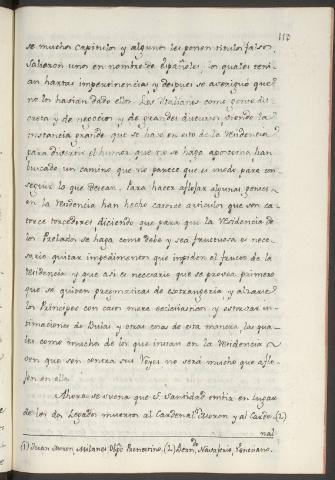 113
se muchos capitulos y algunos les ponen titulos falsos
salieron unos en nombre de Españoles, los quales teni-
an hartas impertinencias y despues se averiguó que
no los habian dado ellos. Los Italianos como gente dis-
creta y de negocios y de grandes discursos, viendo la
instancia grande que se hace en esto de la residencia
para divertir el humor que no se haga aposta han
buscado un camino que no parece que es medio para con-
seguir lo que desean. Para hacer aflojar algunas gentes
en la residencia han hecho catorce articulos que son ca-
torce torcedores, diciendo que para que la residencia de
los Prelados se haga como debe y sea fructuosa es nece-
sario quitar impedimentos que impiden el fructo de la
residencia y que asi es necesario que se provea primero
que se quiten pregmaticas de extrangeria y alzarse
los Principes con casos mere eclesiasticos y estorvar in-
timaciones de Bulas y otras cosas de esta manera las qua-
les como muchos de los que instan en la residencia
ven que son contra sus Reyes no será mucho que aflo-
jen en ella.
Ahora se suena que S. Santidad embia en lugar
de los dos Legados muertos al Cardenal Moron y al Carde- (2)
nal
(1) Juan Moron, Milanes Obpo. Prenestino. (2) Bern.do Navajerio, Veneciano.